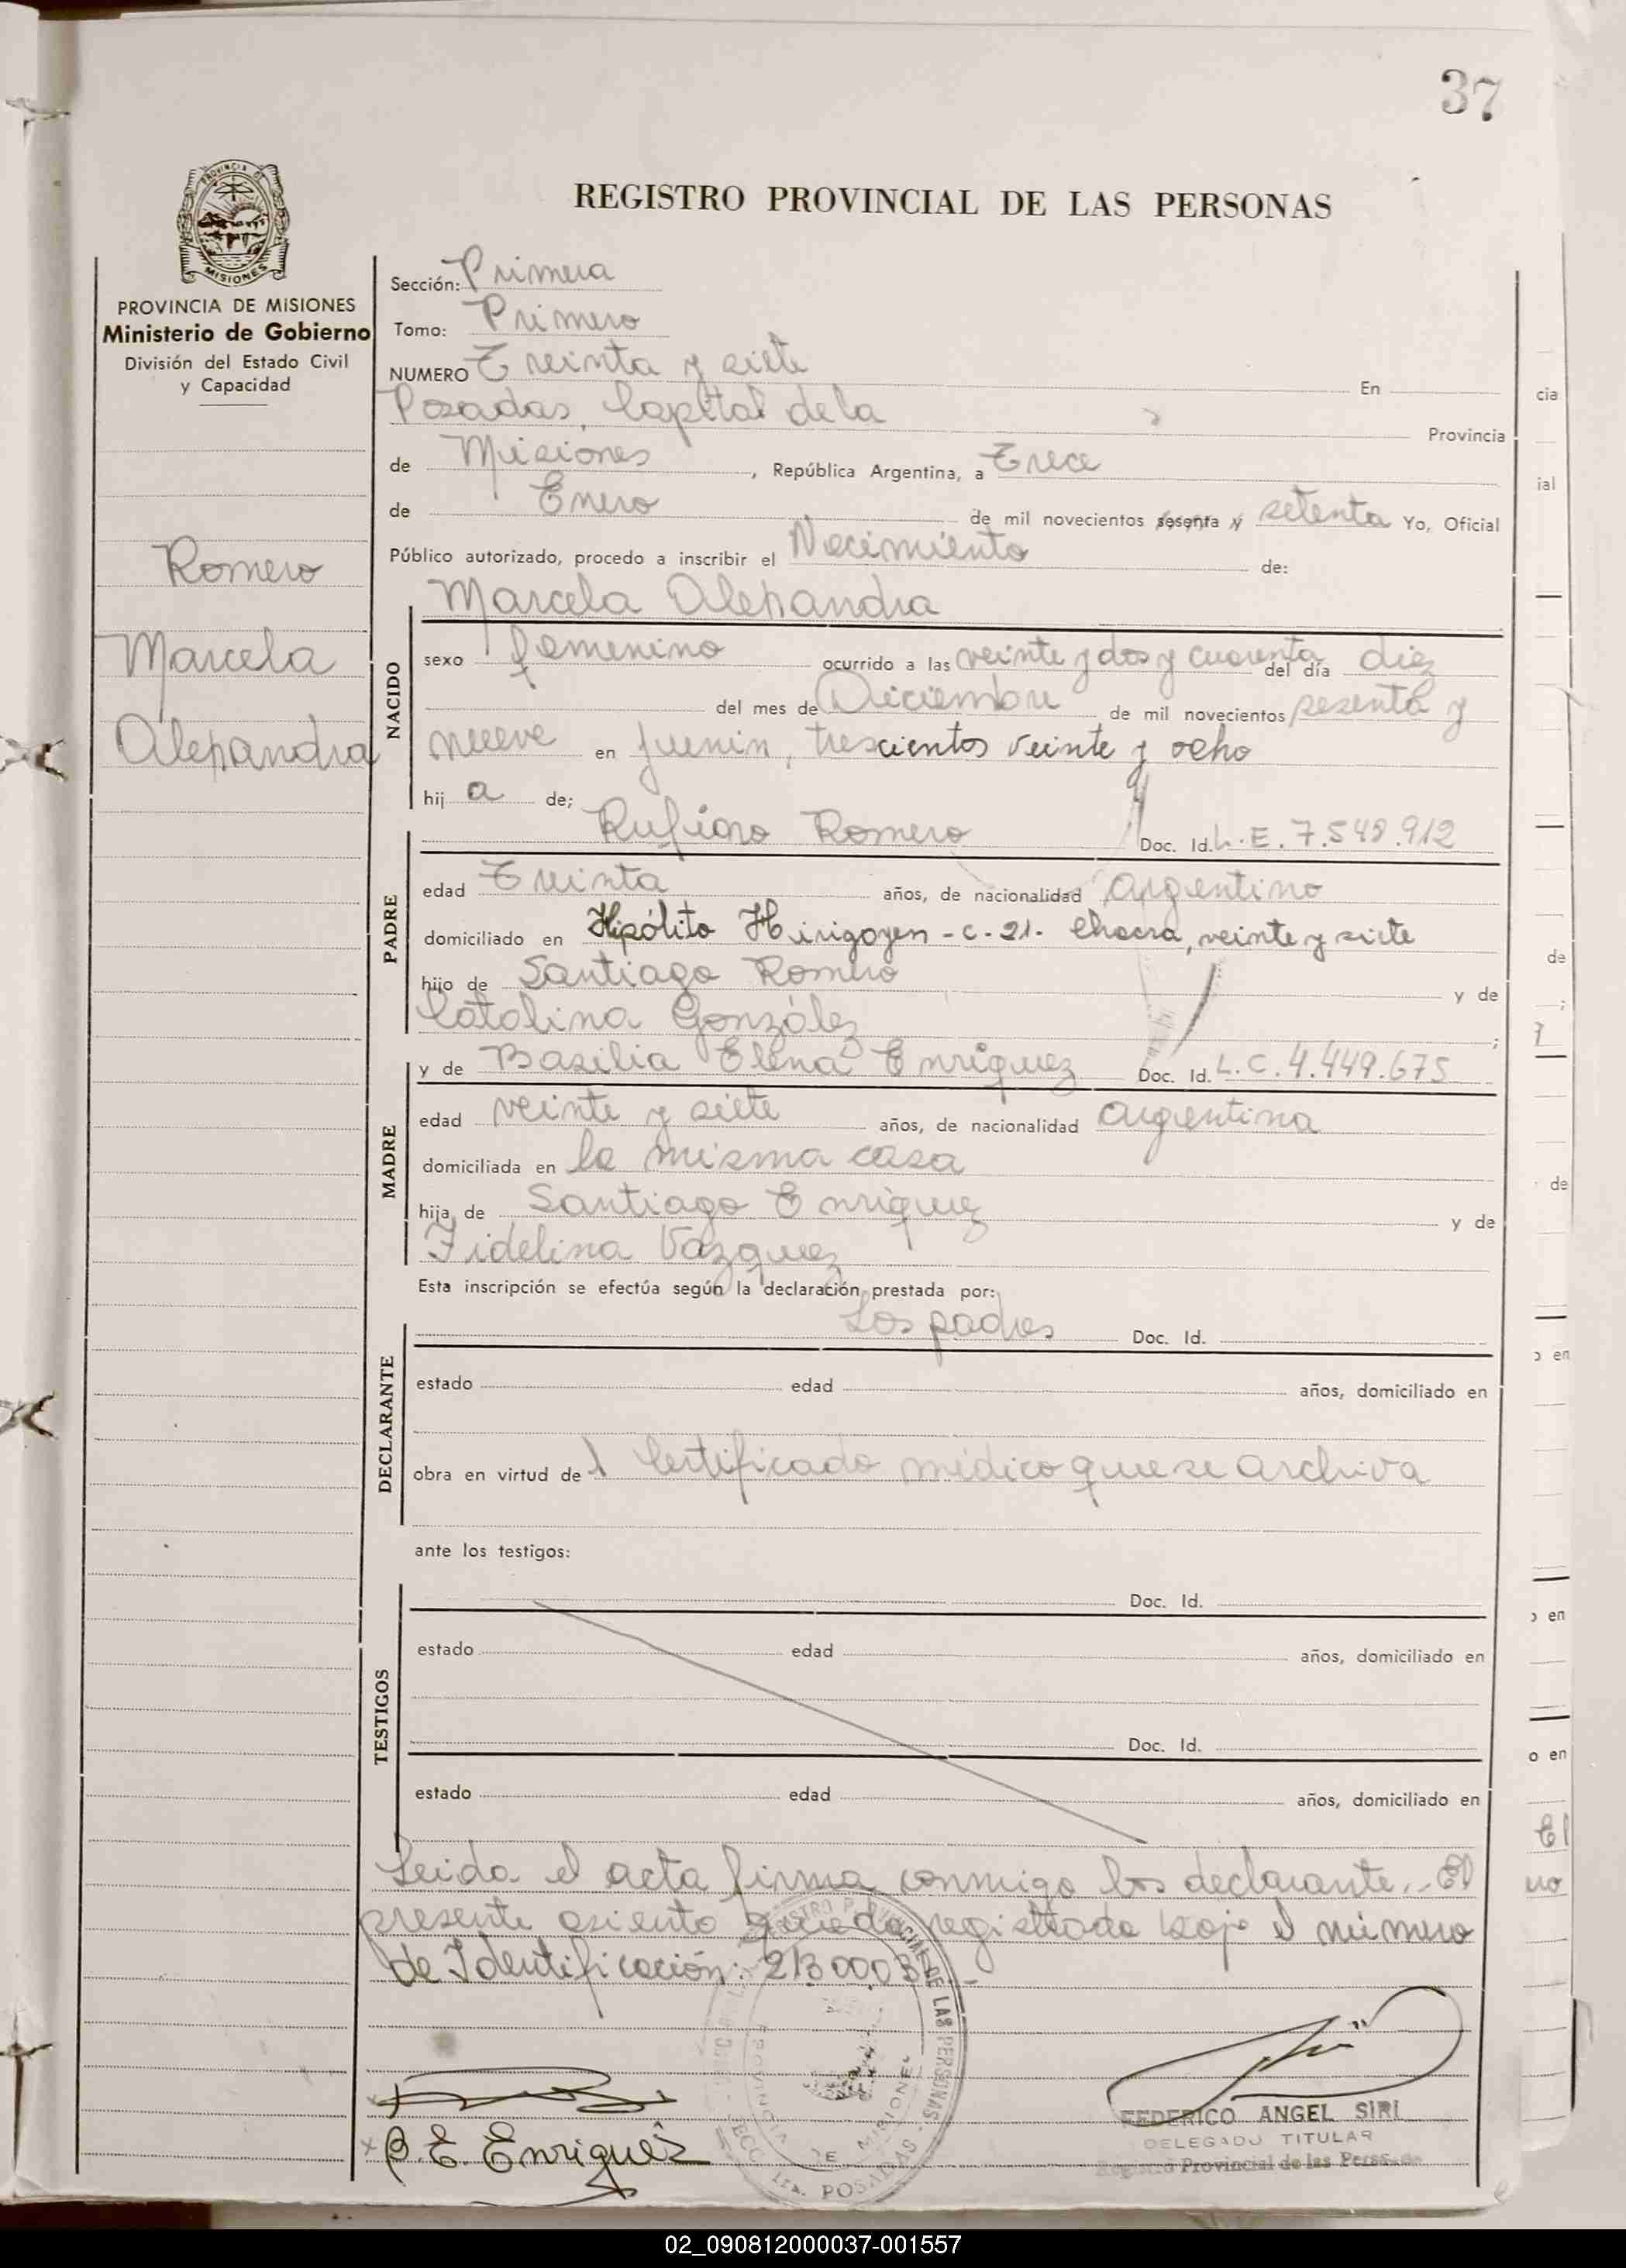 37
REGISTRO PROVINCIAL DE LAS PERSONAS
PROVINCIA DE MISIONES
Ministerio de Gobierno
División del Estado Civil
y Capacidad
Romero
Marcela
Alejandra
Sección: Primera
Tomo: Primero
NUMERO Treinta y siete En
Posadas, Capital de la Provincia
de Misiones, República Argentina, a Trece
de Enero de mil novecientos sesenta y setenta Yo, Oficial
Público autorizado, procedo a inscribir el Nacimiento de:
Marcela Alejandra
NACIDO
sexo femenino ocurrido a las veinte y dos y cuarenta del día diez
del mes de Diciembre de mil novecientos sesenta y
nueve en Junín, trescientos veinte y ocho
hij a de;
Rufino Romero Doc. Id. L.E. 7.548.912
PADRE
edad Treinta años, de nacionalidad Argentino
domiciliado en Hipólito Hirigoyen - c. 21. Chacra, veinte y siete
hijo de Santiago Romero y de
Catalina González ;
MADRE
y de Basilia Elena Enriquez Doc. Id. L.C. 4.449.675
edad veinte y siete años, de nacionalidad argentina
domiciliada en la misma casa
hija de Santiago Enriquez y de
Fidelina Vázquez
Esta inscripción se efectúa según la declaración prestada por:
DECLARANTE
Los padres Doc. Id.
estado edad años, domiciliado en
obra en virtud de l Certificado médico que se archiva
ante los testigos:
TESTIGOS
Doc. Id.
estado edad años, domiciliado en
Doc. Id.
estado edad años, domiciliado en
Leida el acta firma conmigo los declarante.. El
presente asiento queda registrado bajo el número
de Identificación:
B. E. Enriquez
FEDERICO ANGEL SIRI
DELEGADO TITULAR
Registro Provincial de las Personas
02_090812000037-001557